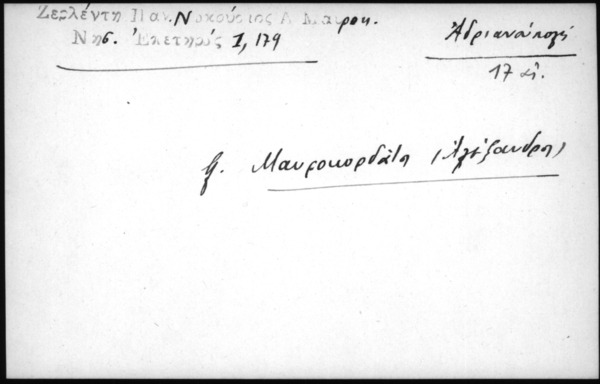 Ζερλέντη Παν. Νικούσιος Α. Μαυροκ.
Νησ. Ἐπετηρίς I, 179
Ἀδριανούπολις
17 αἰ.
Μαυροκορδάτος (Ἀλέξανδρος)